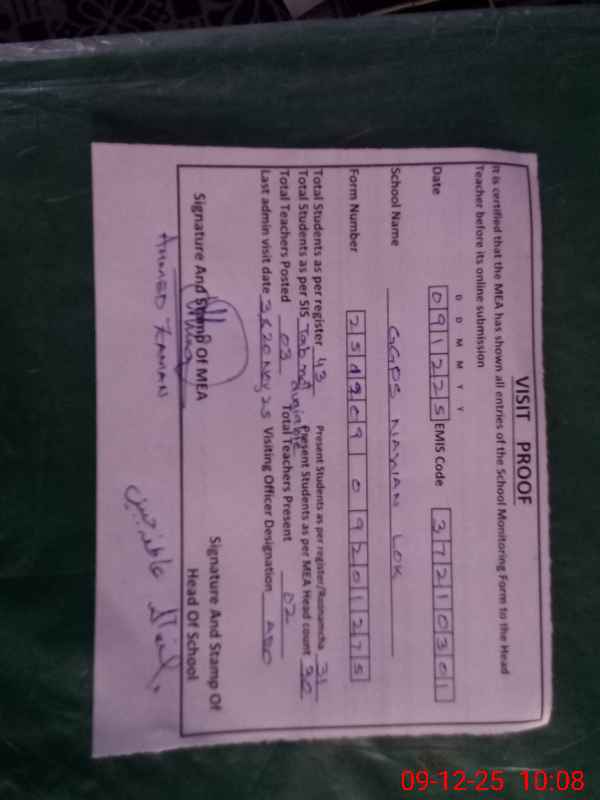 VISIT PROOF
It is certified that the MEA has shown all entries of the School Monitoring Form to the Head
Teacher before its online submission
D D M M Y Y
Date 091225 EMIS Code 37210301
School Name GGPS NAWAN LOK
Form Number
Total Students as per register 43 Present Students as per register/Roznamcha 31
Total Students as per SIS Tab not Present Students as per MEA Head count 30
Total Teachers Posted 03 Total Teachers Present 02
Last admin visit date 3,6,20 Nov 25 Visiting Officer Designation AEO
Signature And Stamp Of MEA
Signature And Stamp Of
Head Of School
AHMED ZAMAN
09-12-25 10:08